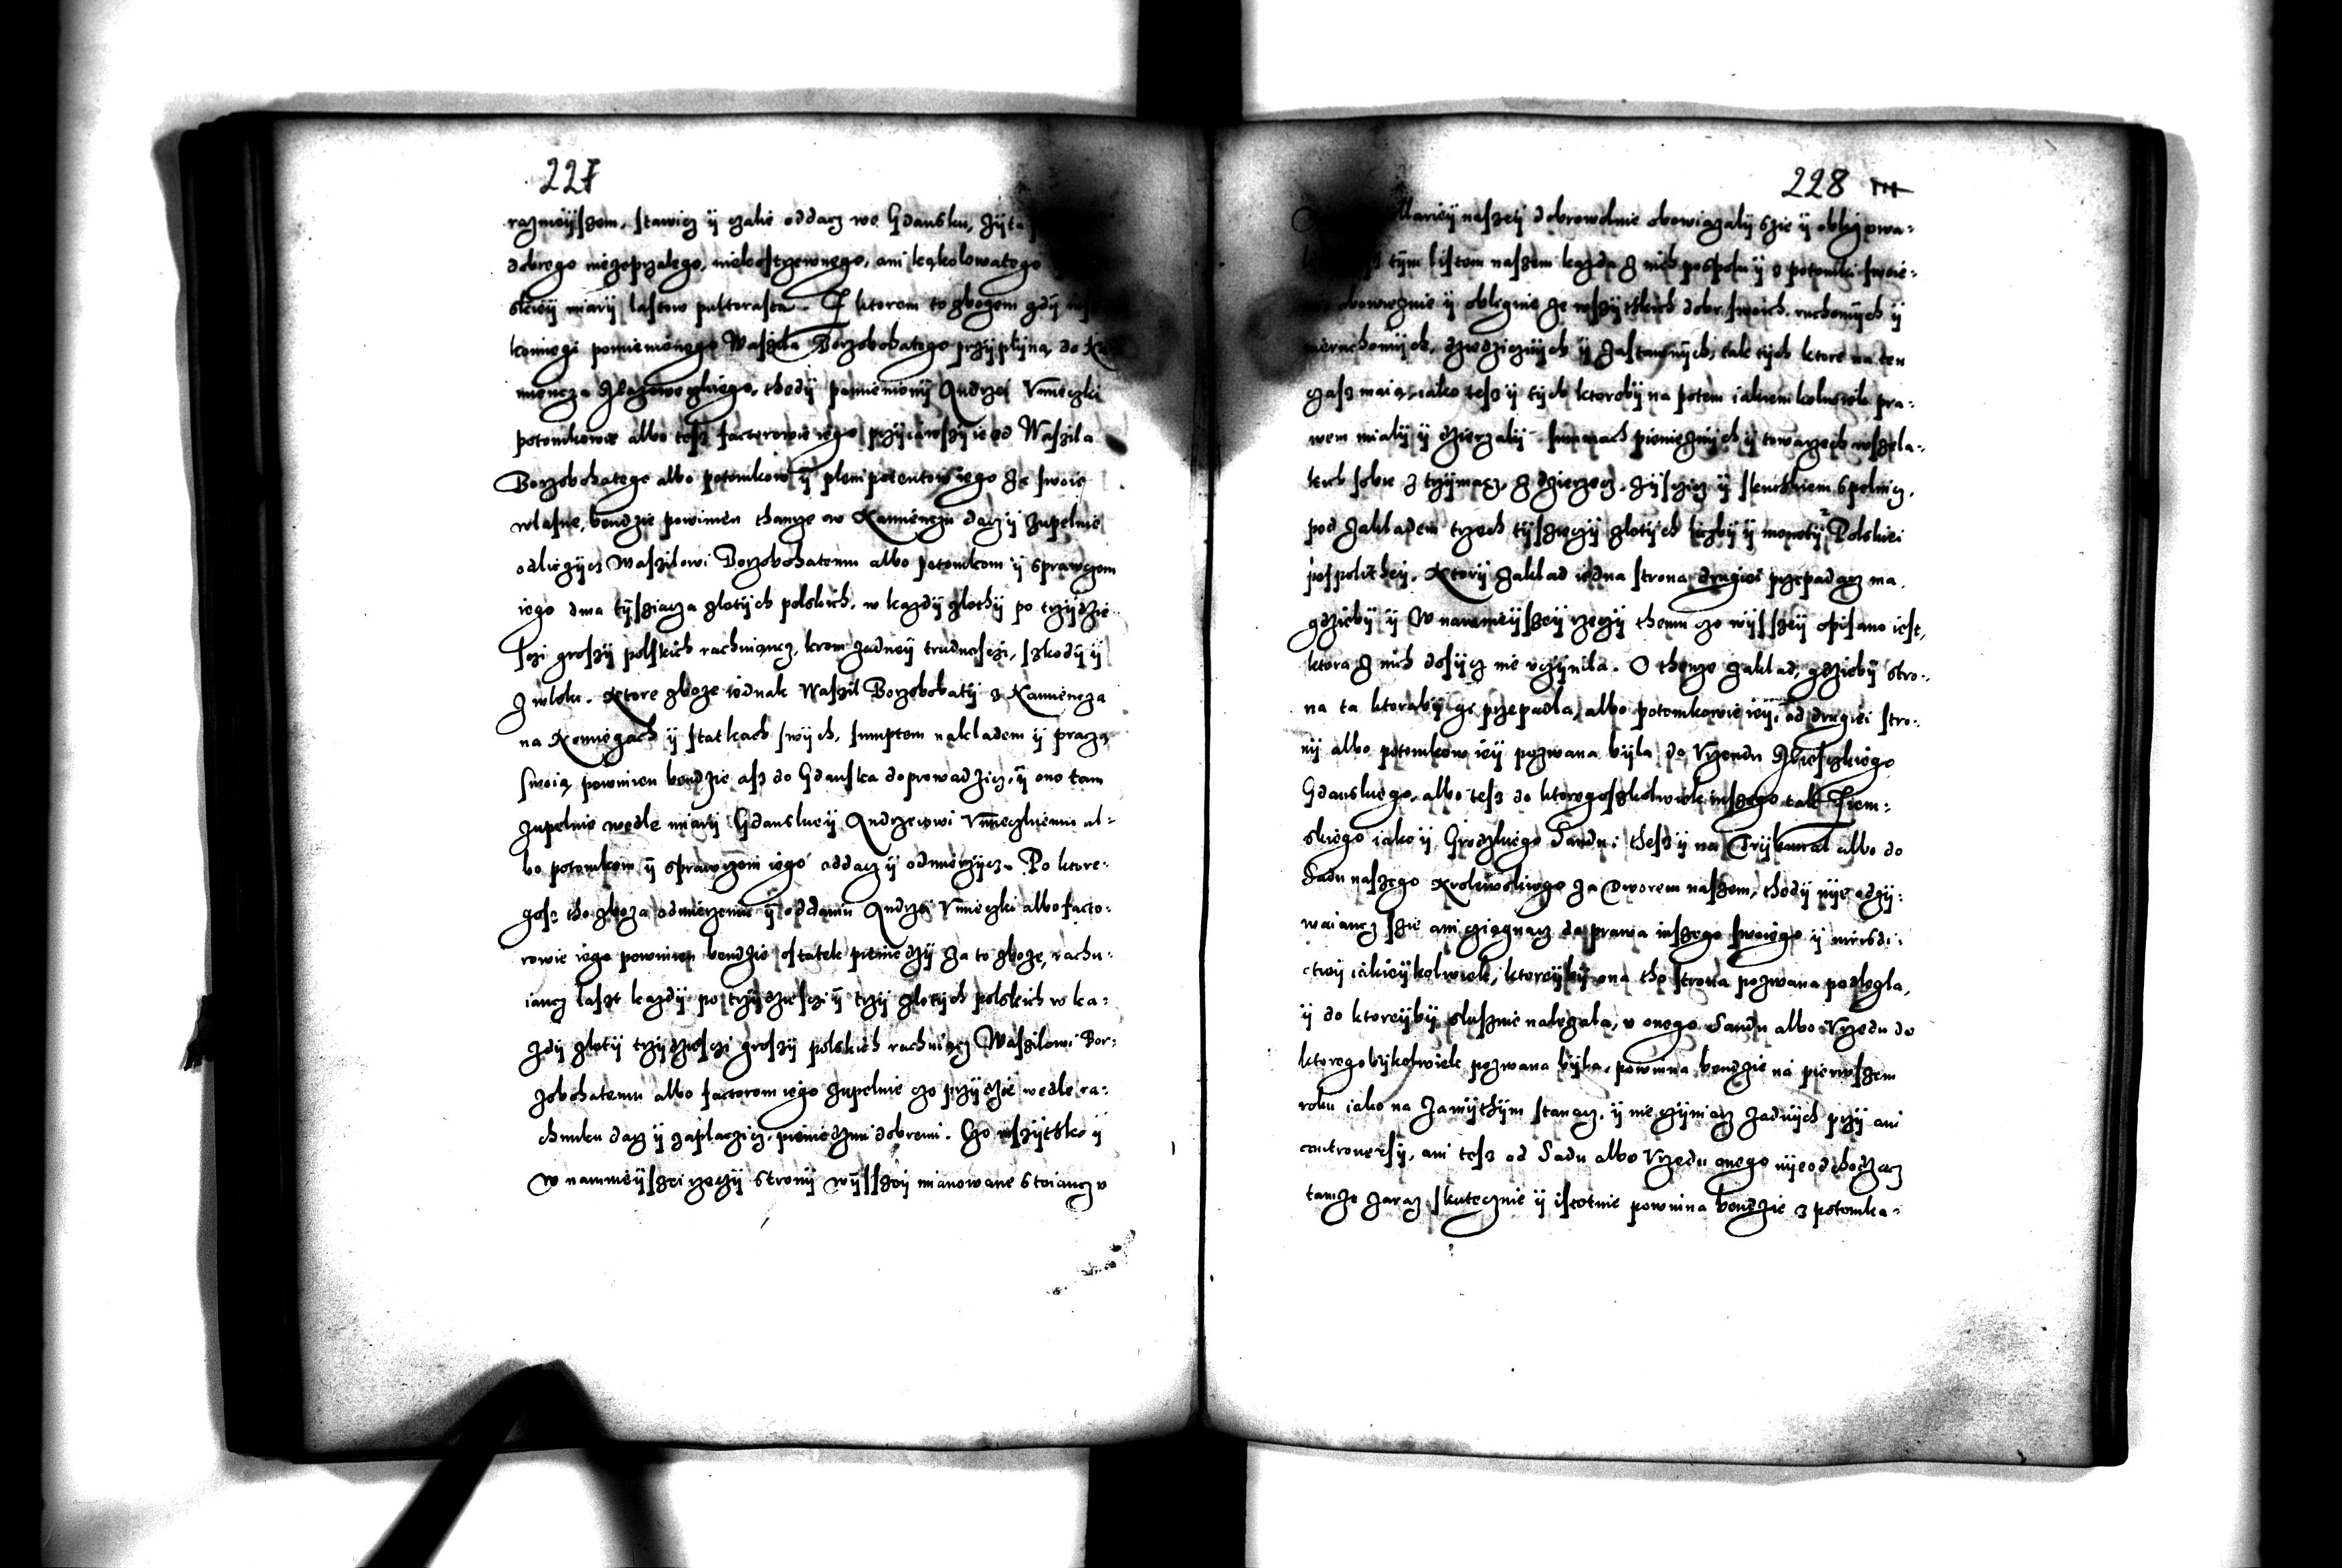 227
razmeÿszem, stawicz ÿ czalie oddacz we Gdansku, zÿta
dobrego niezoprzalego, niekostrzewnego, ani kąkolowatego
skieÿ miarÿ lastow pultorasta. I ktorem to zbozem gdÿ
komiegi pomienionego Waszila Borzobohatego przÿplÿna, do Ka
miencza Jzlazowczkiego, thedÿ pomienionÿ Andrzei Vnieczki
potomkowie albo tesz factorowie iego przÿiawszÿ ie od Waszila
Borzobohatego albo potomkow ÿ plenipotentow iego za swoie
wlasne, bendzie powinien thamze w Kamienczu dacz ÿ zupelnie
odliczÿcz Waszilowi Borzobohatemu albo potomkom ÿ sprawczom
iego dwa tÿsziacza zlotÿch polskich, w kazdÿ zlothÿ po trzÿdzie
sczi groszÿ polskich rachuiącz, krom zadneÿ trudnosczi, szkodÿ ÿ
zwloki. Ktore zboze iednak Waszil Borzobohatÿ z Kamiencza
na Komiegach ÿ statkach swÿch, sumptem nakladem ÿ praczą
swoią, powinien bendzie asz do Gdanska doprowadzicz, ÿ ono tam
zupelnie wedle miarÿ Gdanskieÿ Andrzeiowi Vnieczkiemu al-
bo potomkom ÿ sprawczom iego oddacz ÿ odmierzÿcz. Po ktore-
gosz tho zboza odmierzeniu ÿ oddaniu Andrzei Vnieczki albo facto-
rowie iego powinien bendzie ostatek pieniedzÿ za to zboze, rachu-
iancz laszt kazdÿ po trzÿdziesczi ÿ trzÿ zlotÿch polskich w ka-
zdÿ zlotÿ trzÿdziesczi groszÿ polskich rachuiącz Waszilowi Bor-
zobohatemu albo factorom iego zupelnie czo przÿdzie wedle ra-
chunku dacz ÿ zaplaczicz, pieniedzmi dobremi. Czo wszÿtsko ÿ
w nanmieÿszei rzeczÿ stronÿ wÿsszeÿ mianowane stoiancz v
228
llarieÿ naszeÿ dobrowolnie obowiązalÿ szie ÿ obligowa-
tÿm listem naszem kazda z nich pospolu ÿ z potomki swoie-
obowięzuie ÿ obliguie ze wszÿtskich dobr swoich, ruchomÿch ÿ
nieruchomÿch, dziedzicznÿch ÿ zastawnÿch, tak tÿch ktore na ten
czasz maią, iako tesz ÿ tÿch ktorebÿ na potem iakiem kolwiek pra-
wem mialÿ ÿ dzierzalÿ summach pienieznÿch ÿ towarzech wszela-
kich sobie ztrzÿmacz, zdzierzecz, zÿsczicz ÿ skutkiem spelnicz,
pod zakladem trzech tÿsziączÿ zlotÿch liczbÿ ÿ monetÿ Polskiei
pospolitheÿ. Ktorÿ zaklad iedna strona drugiei przepadacz ma,
gdziebÿ ÿ w naimnieÿszeÿ rzeczÿ themu czo wÿsszeÿ opisano iest,
ktora z nich dosÿcz nie vczÿnila. O thenze zaklad, gdziebÿ stro-
na ta ktorabÿ go przepadla, albo potomkowie ieÿ od drugiei stro-
nÿ albo potomkow ieÿ pozwana bÿla do Vrzendu Mieisczkiego
Gdanskiego, albo tesz do ktoregoszkolwiek inszego tak Ziem-
skiego iako ÿ Grodzkiego Sandu: thesz ÿ na Trÿbunal albo do
Sadu naszego Krolewskiego za Dworem naszem, thedÿ nÿe odzÿ-
waiancz szie ani cziągnącz do prawa inszego swoiego ÿ iurisdi-
ctieÿ iakieÿkolwiek, ktoreÿbÿ ona tho strona pozwana podlegla,
ÿ do ktoreÿbÿ slusznie nalezala, v onego Sandu albo Vrzedu do
ktoregobÿkolwiek pozwana bÿla, powinna bendzie na pierwszem
roku iako na zawÿthÿm stanącz, ÿ nie czÿniącz zadnÿch przÿ ani
controuersÿ, ani tesz od Sadu albo Vrzedu onego nÿeodchodzącz
tamze zaraz skutecznie ÿ istotnie powinna bendzie z potomka-